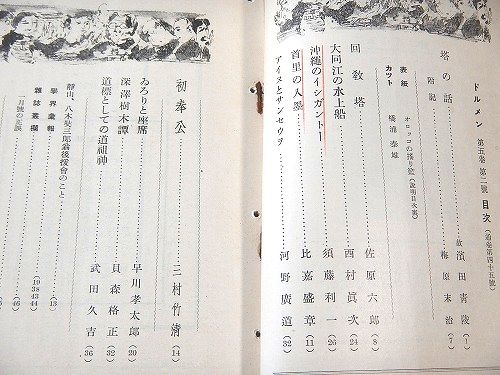 ドルメン 第五巻 第二號 目次 (通巻第四十五號)
塔の話 故 濱田青陵 (1)
梅原末治 (7)
表紙 オロッコの踊り
カット 橋浦泰雄
回敎塔 佐原六郎 (8)
大同江の水上船 西村眞次 (24)
沖繩のイシガントー 須藤利一 (26)
首里の人墨 比嘉盛章 (11)
アイヌとサンセウヲ 河野廣道 (32)
初奉公 三村竹淸 (14)
ゐろりと座席 早川孝太郎 (20)
深澤樹木譚 貝森格正 (32)
道標としての道祖神 武田久吉 (36)
靜山、八木奘三郎翁後援會のこと (13)
學界彙報 (19 38 43 44)
雜誌叢欄
一月號の正誤 (46)